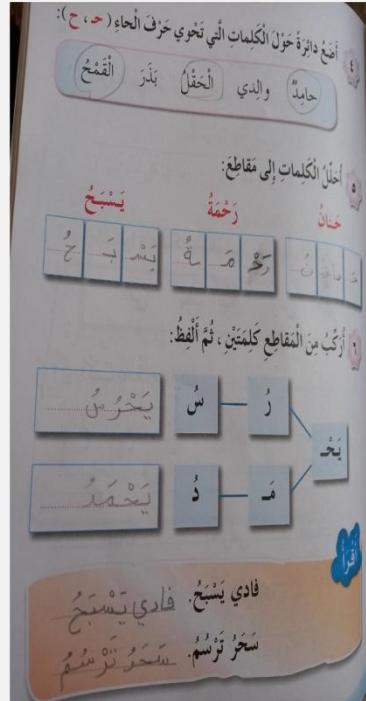 ٤ أَضَعُ دائِرَةً حَوْلَ الْكَلِماتِ الَّتي تَحْوي حَرْفَ الْحاءِ ( حـ ، ح ):
حامِدٌ والِدي الْحَقْلُ بَذَرَ الْقَمْحُ
٥ أُحَلِّلُ الْكَلِماتِ إِلى مَقاطِعَ:
حَنانُ رَحْمَةُ يَسْبَحُ
حَـ نا نُ رَحْـ مَـ ـةُ يَسْـ بَـ حُ
٦ أُرَكِّبُ مِنَ الْمَقاطِعِ كَلِمَتَيْنِ ، ثُمَّ أَلْفِظُ:
رُ سُ يَحْرُسُ
يَحْـ
مَـ دُ يَحْمَدُ
أَقْرَأُ
فادي يَسْبَحُ. فادي يَسْبَحُ
سَحَرُ تَرْسُمُ. سَحَرُ تَرْسُمُ